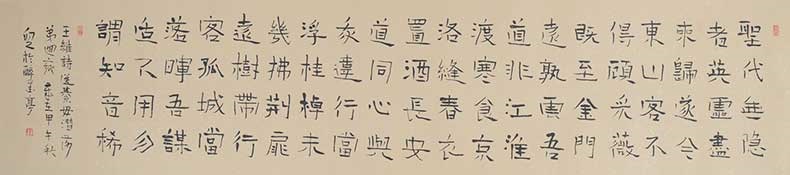 聖代無隱
者英靈盡
來歸遂令
東山客不
得顧采薇
既至金門
遠孰雲吾
道非江淮
渡寒食京
洛縫春衣
置酒長安
道同心與
違行當
浮桂棹未
幾拂荊扉
遠樹帶行
客孤城當
落暉吾謀
适不用勿
謂知音稀
王維詩送綦毋潛落
第歲在甲午秋